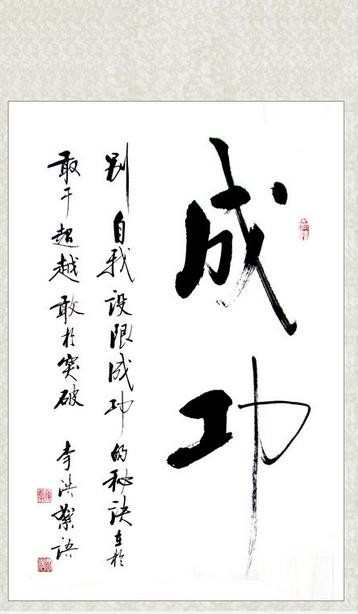 成功
别自我设限成功的秘诀在於
敢于超越敢於突破 李洪 语